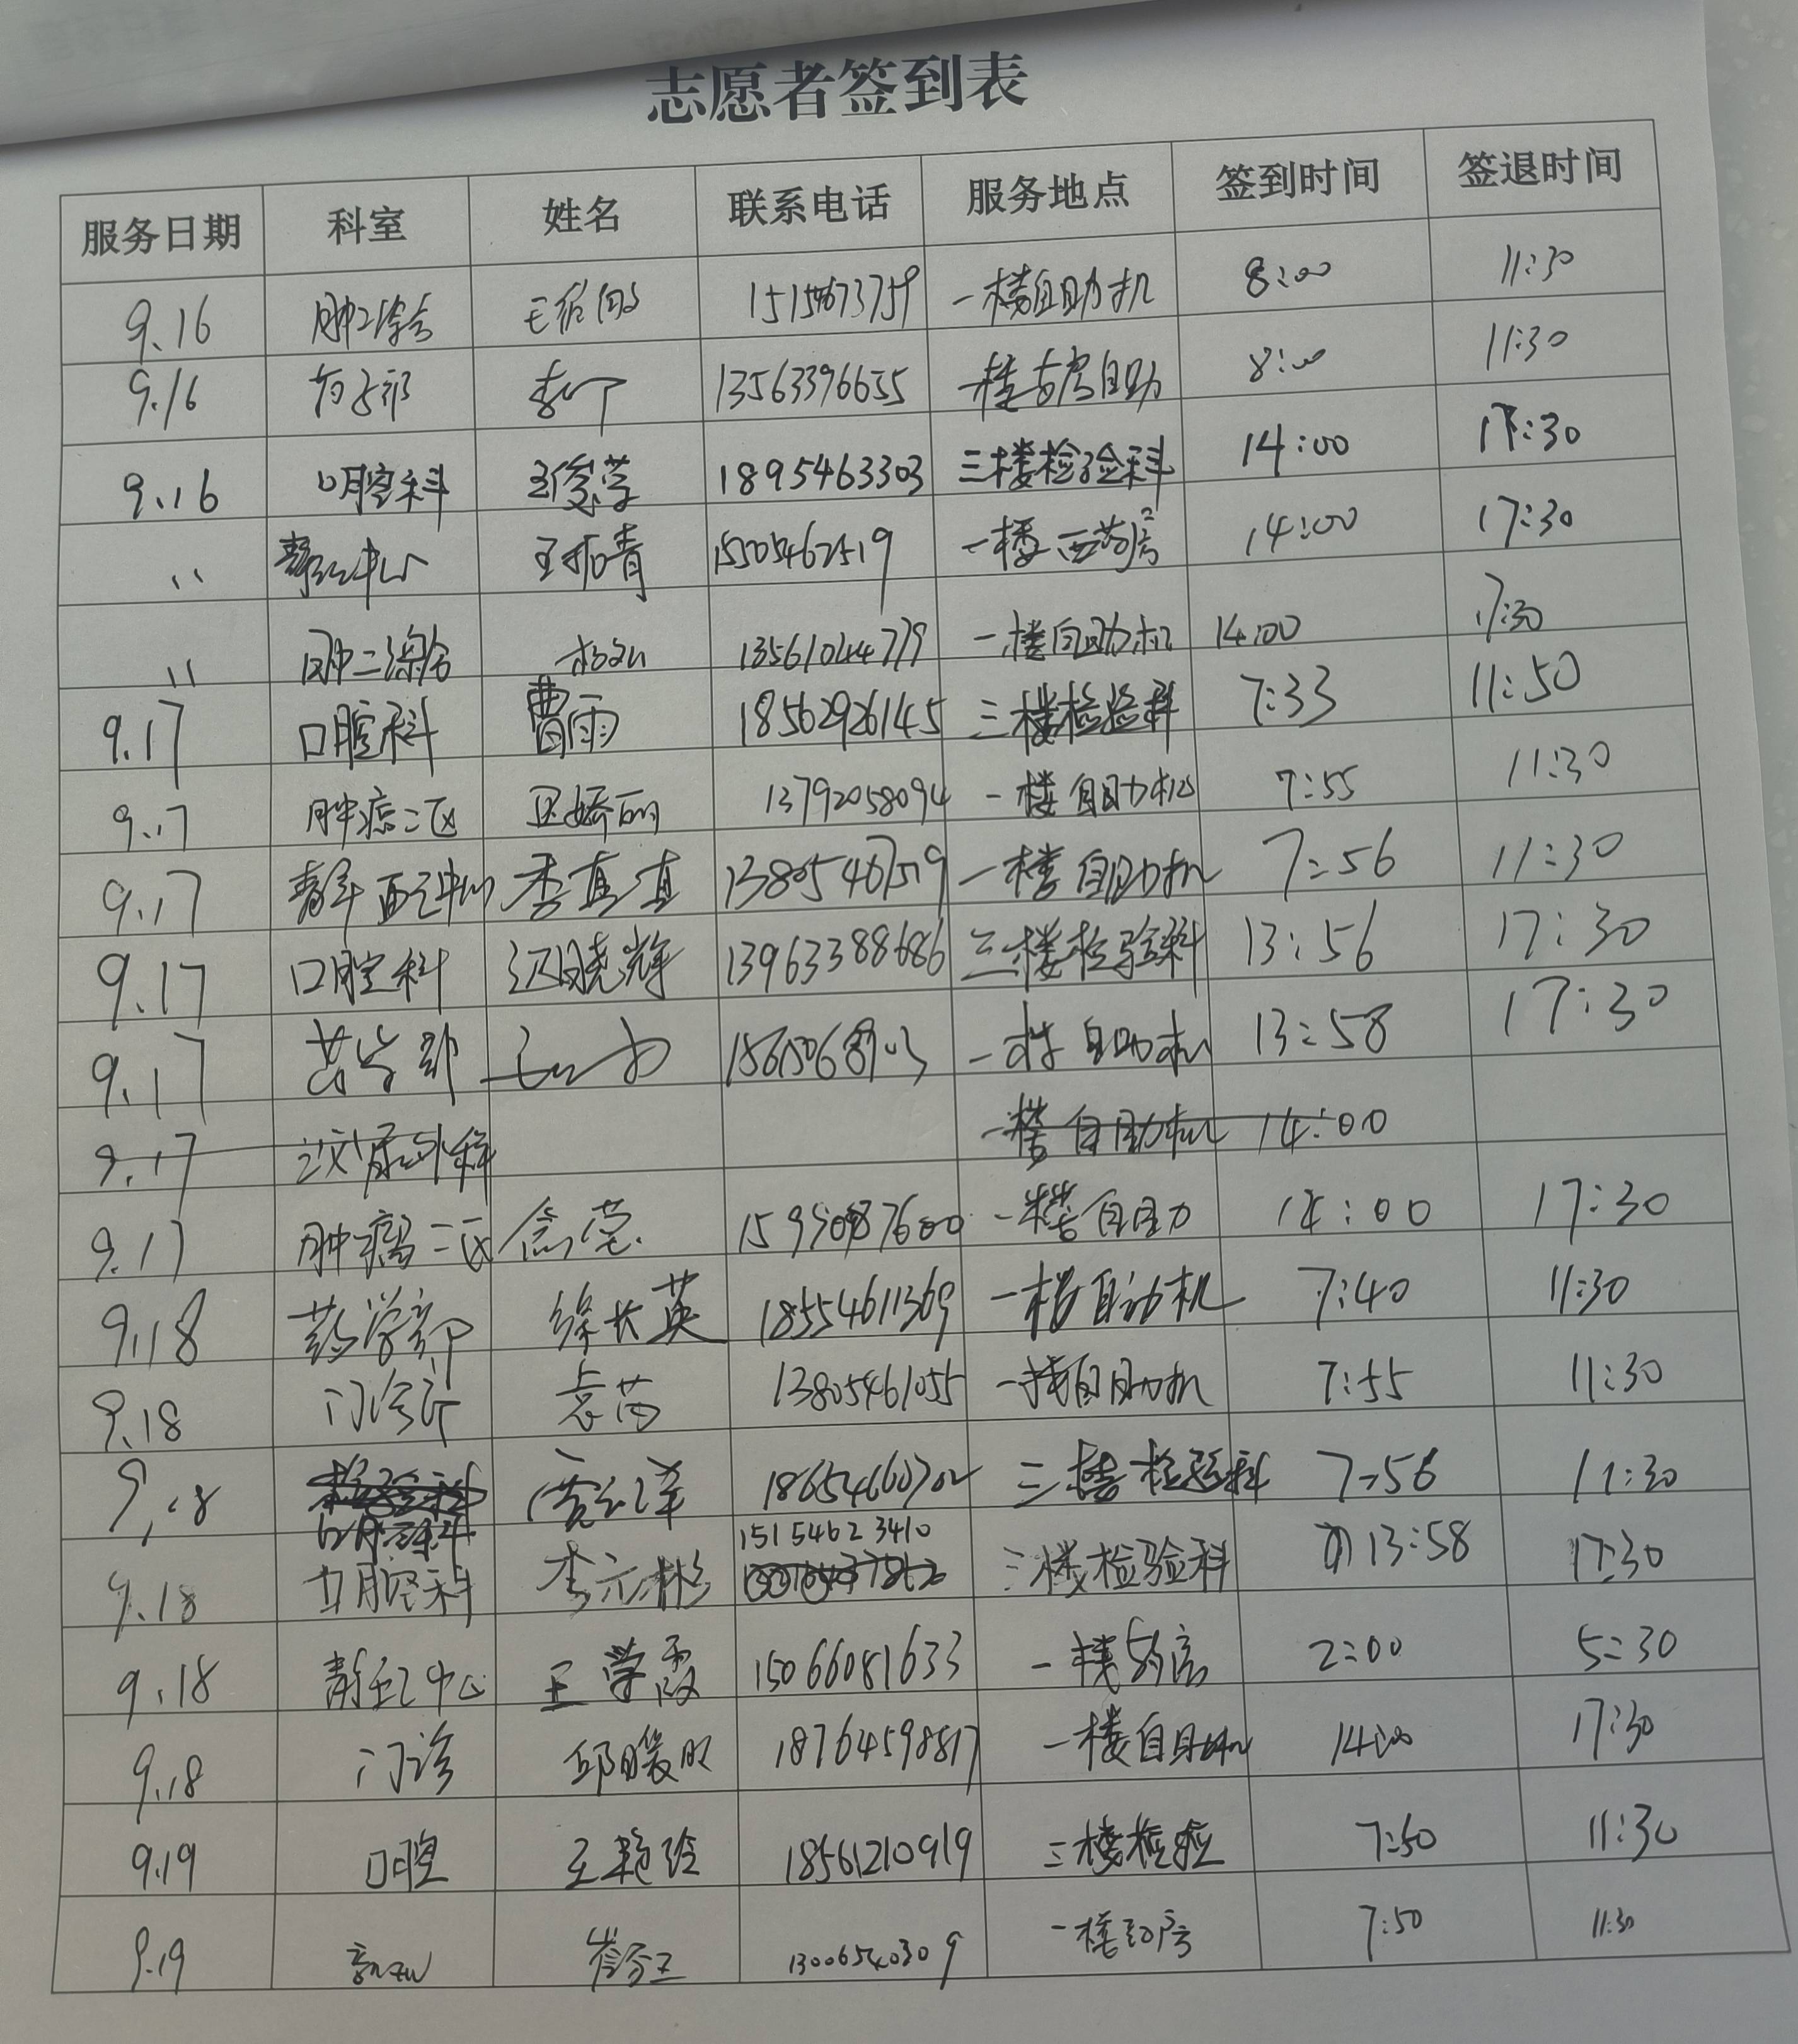 志愿者签到表
服务日期 科室 姓名 联系电话 服务地点 签到时间 签退时间
9.16 一楼自助机 8:00 11:30
9.16 13563396655 一楼药房自助 8:00 11:30
9.16 口腔科 1895463303 三楼检验科 14:00 17:30
" 静配中心 15505462519 一楼西药房 14:00 17:30
" 肿二综合 13561044779 一楼自助机 14:00 17:30
9.17 口腔科 曹雨 18562926145 三楼检验科 7:33 11:50
9.17 肿瘤二区 13792058094 一楼自助机 7:55 11:30
9.17 静配中心 李真真 一楼自助机 7:56 11:30
9.17 口腔科 汉晓辉 13963388686 三楼检验科 13:56 17:30
9.17 药学部 一楼自助机 13:58 17:30
9.17 泌尿外科 一楼自助机 14:00
9.17 肿瘤二区 一楼自助 14:00 17:30
9.18 药学部 徐长英 18554611369 一楼自助机 7:40 11:30
9.18 门诊 袁芮 13805461055 一楼自助机 7:55 11:30
9.18 口腔科 三楼检验科 7:56 11:30
9.18 口腔科 李元彬 15154623410 三楼检验科 13:58 17:30
9.18 静配中心 王学霞 15066081633 一楼药房 2:00 5:30
9.18 门诊 18764598817 一楼自助机 14:00 17:30
9.19 口腔 王艳玲 18561210919 三楼检验 7:50 11:30
9.19 13006540309 一楼药房 7:50 11:30